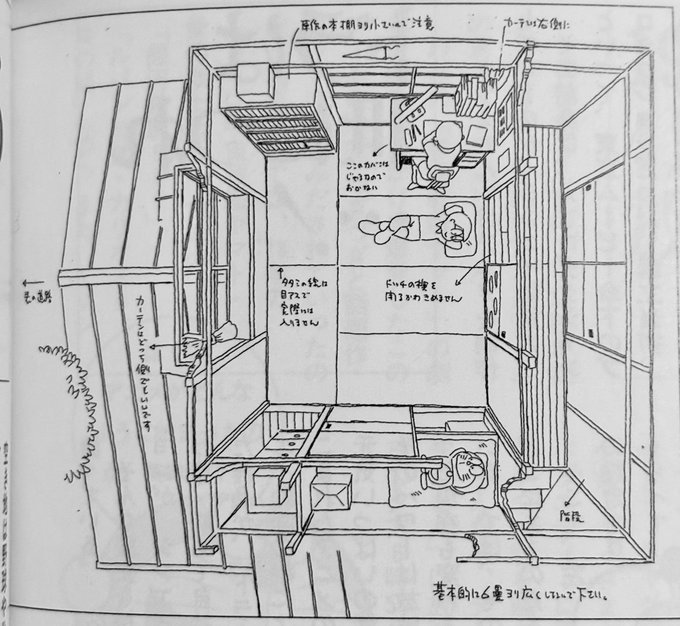 原作の本棚ヨリ小さいので注意
カーテンは右側に
ここのカバンは
じゃまなので
おかない
タタミの線は
目アスで
実際には
入りません
ドッチの襖を
開るかわきめません
カーテンはどっち側でもいいです
階段
基本的に6畳ヨリ広くしないで下さい。